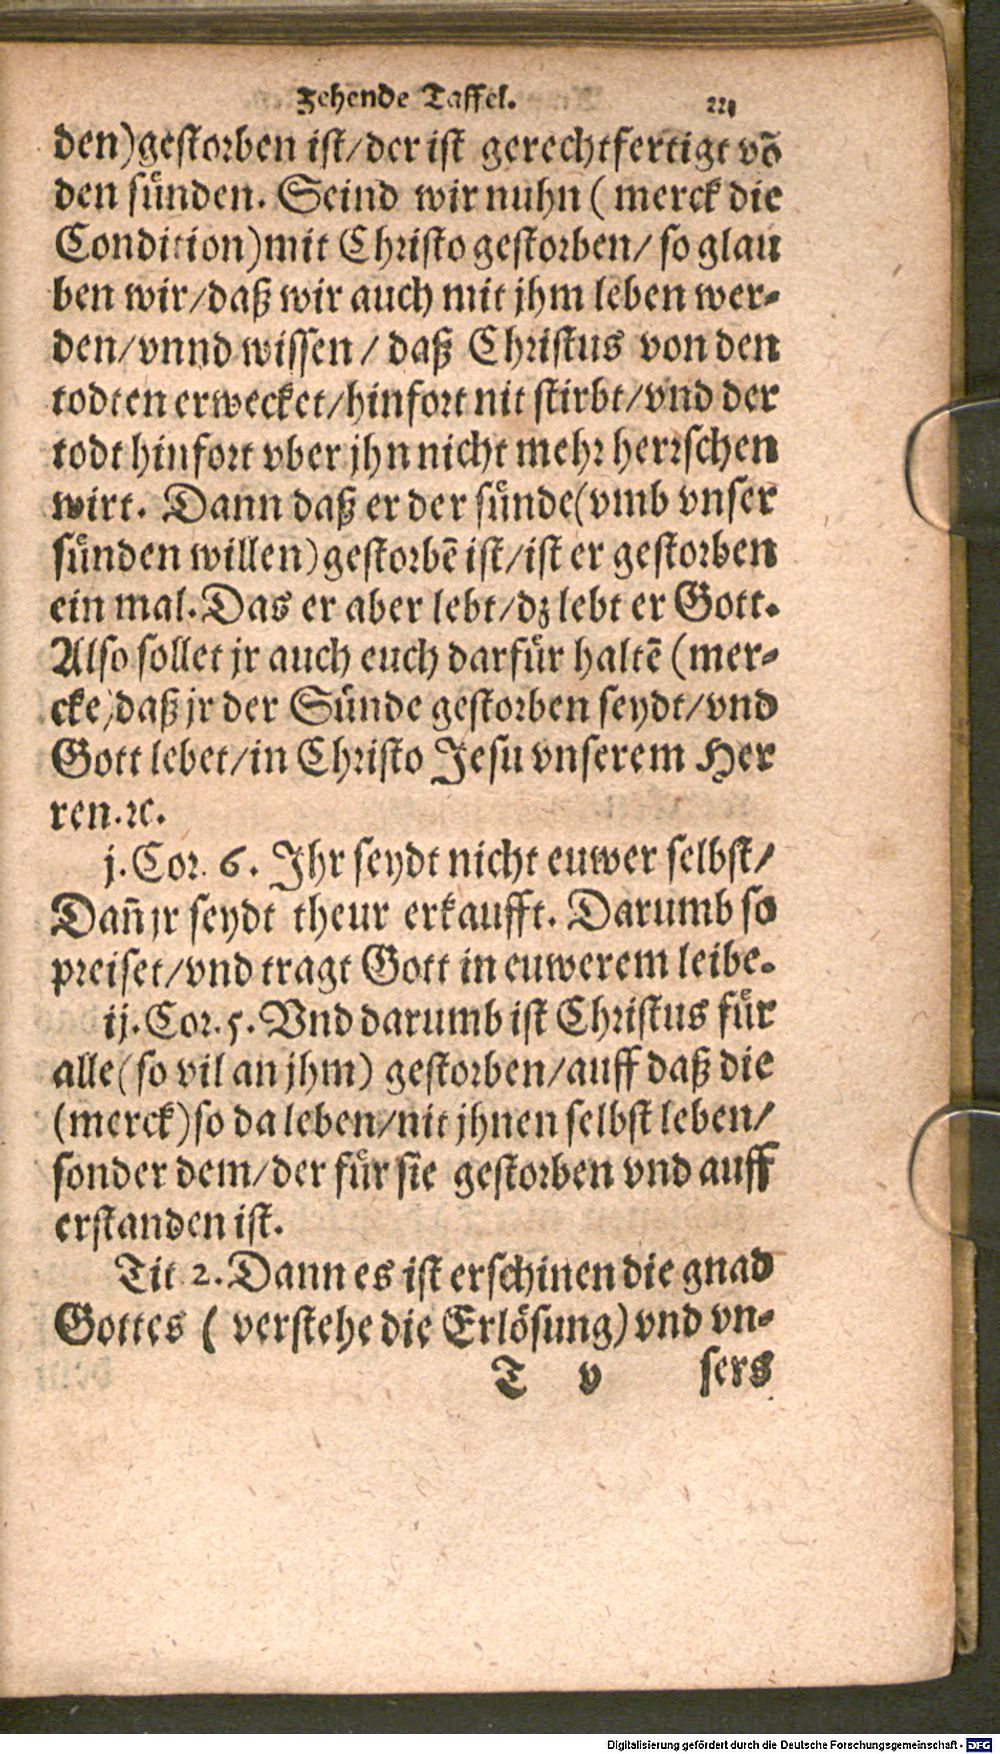 Zehende Taffel. 221
den)gestorben ist/der ist gerechtfertigt võ
den sünden. Seind wir nuhn ( merck die
Condition)mit Christo gestorben/ so glau
ben wir/daß wir auch mit jhm leben wer-
den/vnnd wissen / daß Christus von den
todten erwecket/hinfort nit stirbt/vnd der
todt hinfort vber jhn nicht mehr herrschen
wirt. Dann daß er der sünde(vmb vnser
sünden willen)gestorbẽ ist/ist er gestorben
ein mal. Das er aber lebt/dz lebt er Gott.
Also sollet jr auch euch darfür haltẽ (mer-
cke)daß jr der Sünde gestorben seydt/vnd
Gott lebet/in Christo Jesu vnserem Her
ren.ꝛc.
j.Cor. 6. Ihr seydt nicht euwer selbst/
Dañ jr seydt theur erkaufft. Darumb so
preiset/vnd tragt Gott in euwerem leibe.
ij.Cor.5. Vnd darumb ist Christus für
alle(so vil an jhm) gestorben/auff daß die
(merck)so da leben/nit jhnen selbst leben/
sonder dem/der für sie gestorben vnd auff
erstanden ist.
Tit 2. Dann es ist erschinen die gnad
Gottes ( verstehe die Erlösung) vnd vn-
T v sers
Digitalisierung gefördert durch die Deutsche Forschungsgemeinschaft - DFG